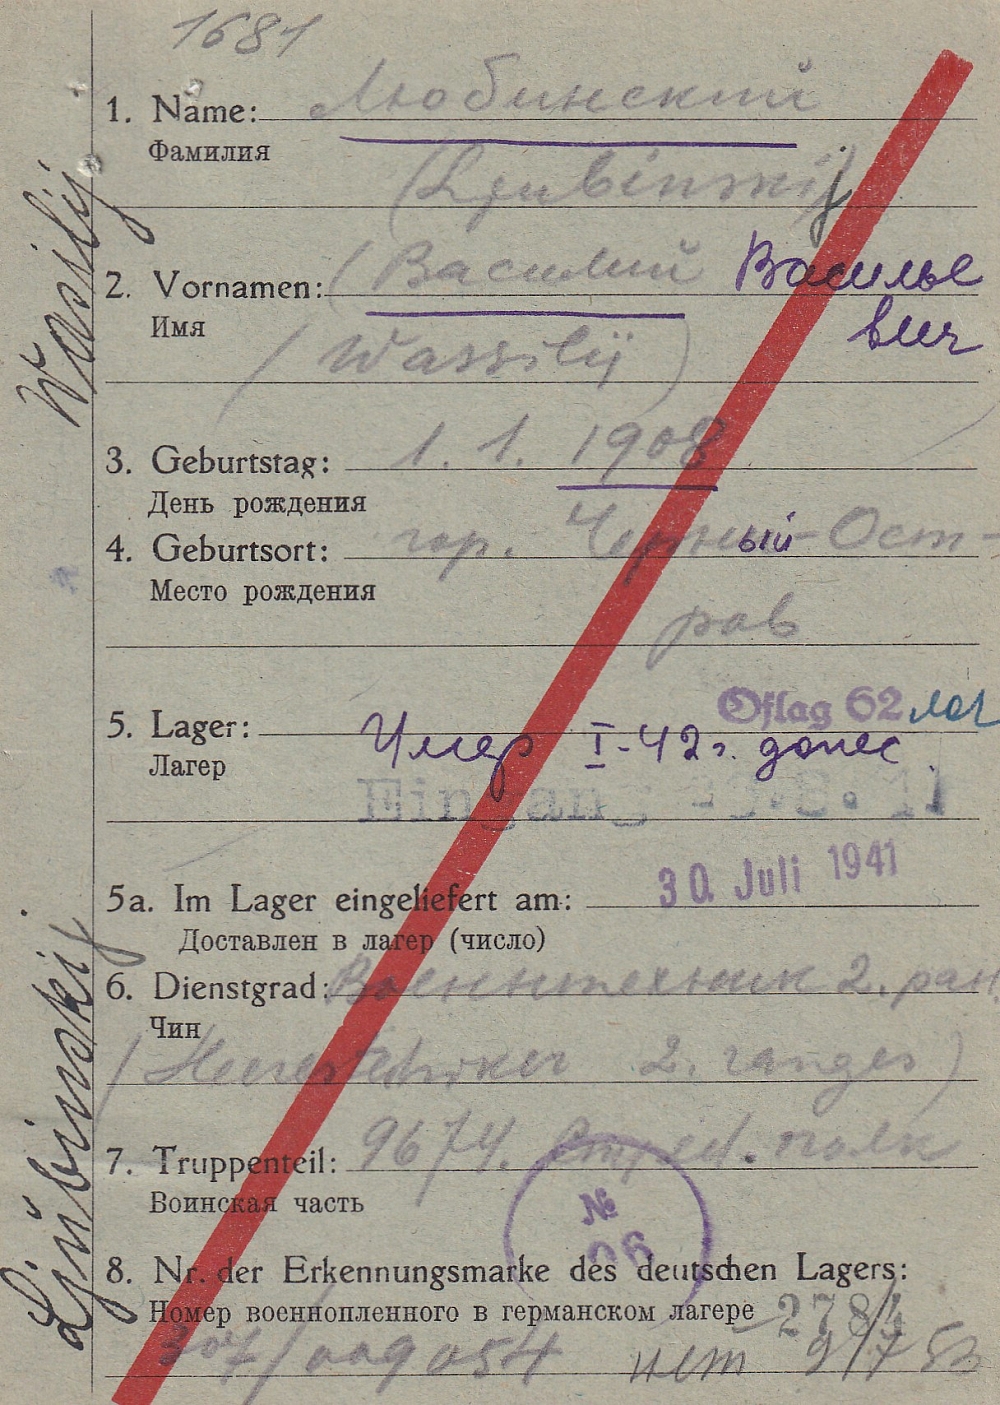 1681
1. Name: Любинский
Фамилия
(Ljubinskij
2. Vornamen: (Василий Василье
вич
Имя
(Wassilij)
3. Geburtstag: 1. 1. 1908
День рождения
4. Geburtsort: гор. Черный-Ост-
Место рождения
ров
Oflag 62
5. Lager: Умер I-42г. донес
Лагер
Eingang
5a. Im Lager eingeliefert am: 30. Juli 1941
Доставлен в лагер (число)
6. Dienstgrad: Воентехник 2. ран
Чин
(Heerestechniker 2. ranges)
7. Truppenteil: 9674. полк
Воинская часть
№
8. Nr. der Erkennungsmarke des deutschen Lagers:
Номер военнопленного в германском лагере 2784
нет 9/7 53
Ljubinskij Wasilij